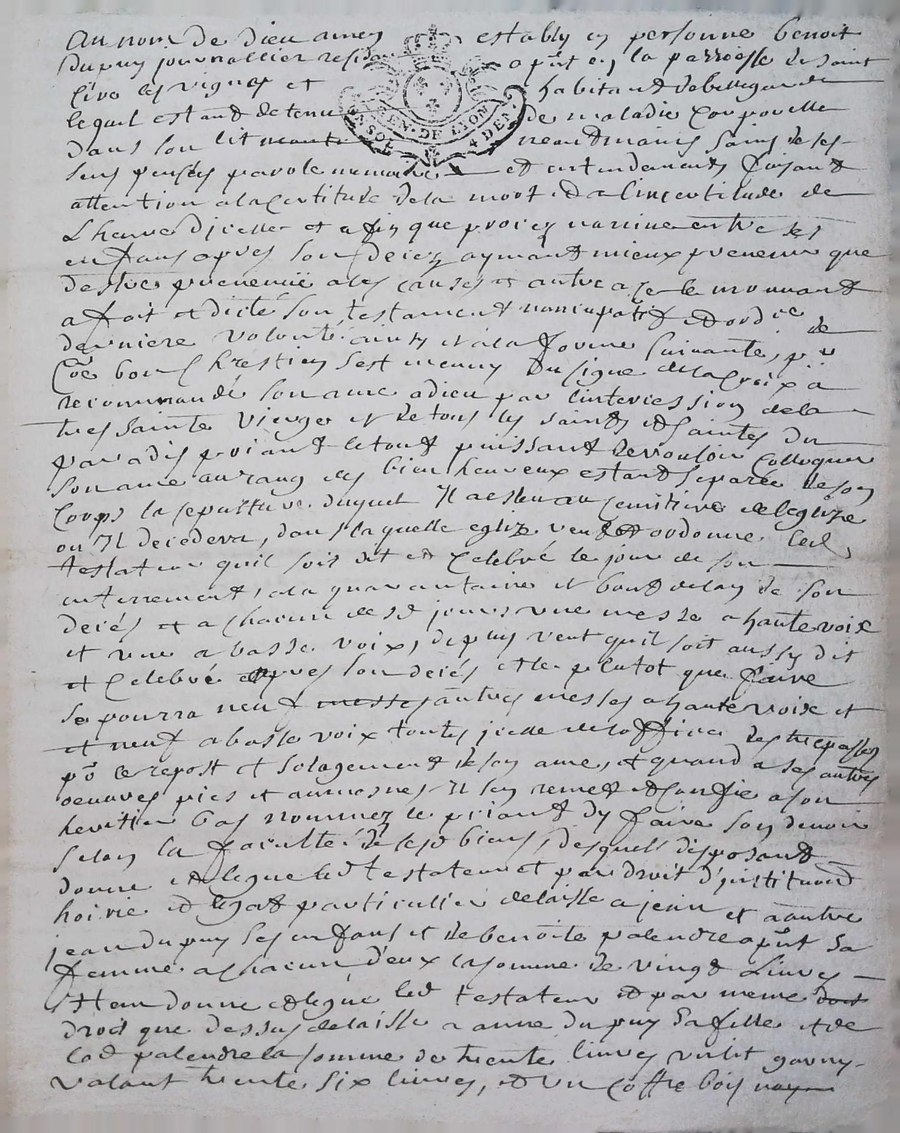 Au nom de dieu amen establÿ en personne benoit
dupuy journallier resid a pñt en la parroisse de saint
les vignes et habitant de bellegarde
lequel estant detenu de maladie corporelle
dans son lit neantmoins sains de ses
sens pensées parole memoire et entendement faisant
attention a la certitude de la mort et a l'incertitude de
L'heure d'icelle et afin que procez n'arrive entre ses
enfans apres son deced aymant mieux prevenir que
destre prevenu a ces causes et autre a ce le mouvant
a fait et dicté son testament nuncupatif et ord.ce de
derniere volonté ainsy et a la forme suivante, p.r
Coe bon Chrestien s'est muny du signe de la croix a
recommandé son ame a dieu par l'intercession de la
tres sainte Vierge et de tous les saints et saintes du
paradis priant le tout puissant de vouloir Colloquer
son ame au rang des bien heureux estant separée de son
Corps la sepulture duquel Il a esleu au cemitiere de leglize
ou Il decedera, dans laquelle eglize veut et ordonne led
testateur quil soit dit et Celebré le jour de son
enterrement, a la quarantaine et bout de lan de son
deces et a chacun de sd jours une messe a haute voix
et une a basse voix, de plus veut quil soit aussy dit
et Celebré apres son deces et le plutot que faire
se pourra neuf messes autres messes a haute voix et
et neuf a basse voix toutes icelle de loffice des trepassez
po le repost et solagement de son ame, et quand a ses autres
oeuvres pies et aumosnes Il sen remet et confie a son
heritier bas nommez le priant dy faire son devoir
selon la faculté de sesd biens, desquels disposant
donne et legue led testateur et par droit d'jnstitution
hoirie et legat particulier delaisse a jean et a autre
jean dupuy ses enfans et de benoite palendre a pñt sa
femme a chacun d'eux la somme de vingt Livres
Item donne et legue led testateur et par meme droit
droit que dessus delaisse a anne dupuy sa fille et de
lad palendre la somme de trente livres un lit garny
valant trente six livres, et un Coffre bois noyer
EN SOL GEN. DE LYON 4 DEN.